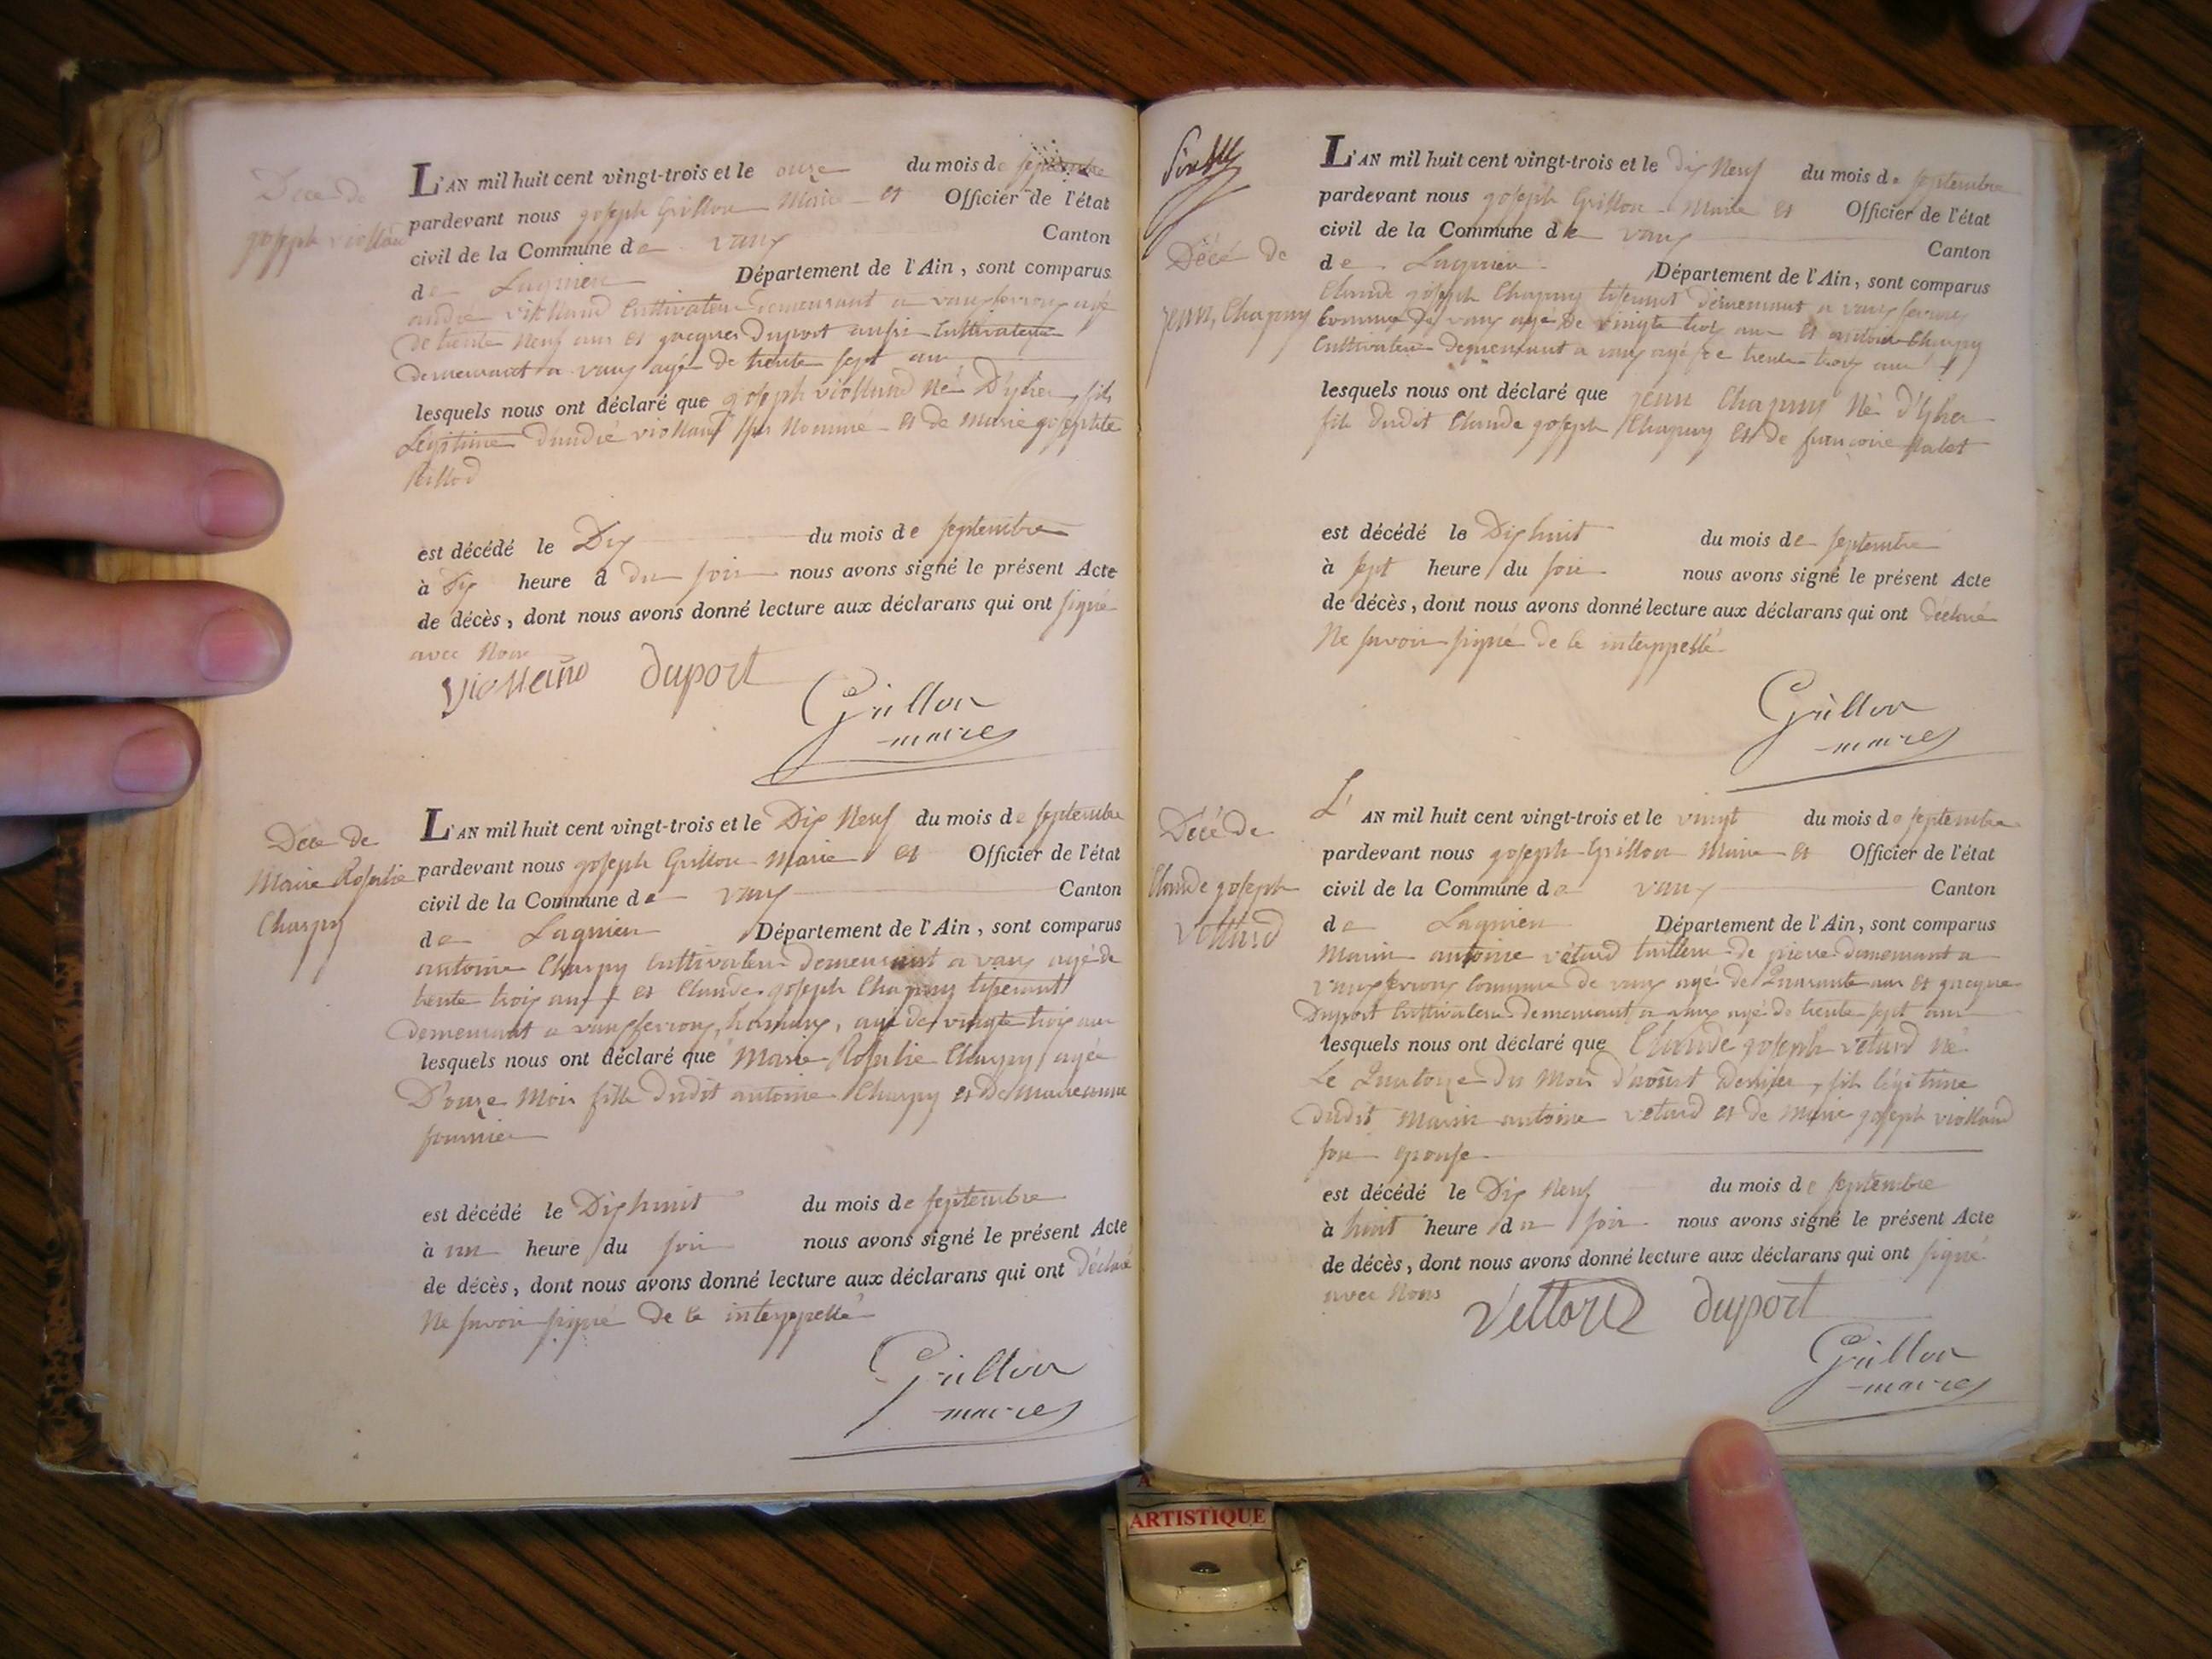 Décé de
joseph violland
L'AN mil huit cent vingt-trois et le onze du mois de septembre
pardevant nous joseph Grillon Maire et Officier de l'état
civil de la Commune de vaux Canton
de Lagnieu Département de l'Ain, sont comparus
andré violland Cultivateur demeurant a vauxfevroux agé
de trente Neuf ans et jacques Duport aussi Cultivateur
demeurant a vaux agé de trente sept ans
lesquels nous ont déclaré que joseph violland né D'hier fils
Légitime d'andré violland Nommé et de Marie josephte
est décédé le Dix du mois de septembre
à Dix heure d du soir nous avons signé le présent Acte
de décès, dont nous avons donné lecture aux déclarans qui ont signé
avec Nous
Violland duport
Grillon
maire
Décé de
Marie Rosalie
Charpy
L'AN mil huit cent vingt-trois et le Dix Neuf du mois de septembre
pardevant nous joseph Grillon Maire et Officier de l'état
civil de la Commune de vaux Canton
de Lagnieu Département de l'Ain, sont comparus
antoine Charpy Cultivateur demeurant a vaux agé de
trente trois ans et Claude joseph Chapuy tisserant
demeurant a vauxfevroux, agé de vingte trois ans
lesquels nous ont déclaré que Marie Rosalie Charpy agée
D'onze Mois fille dudit antoine Charpy et De Marieanne
fournier
est décédé le Dixhuit du mois de septembre
à un heure du soir nous avons signé le présent Acte
de décès, dont nous avons donné lecture aux déclarans qui ont Déclaré
Ne savoir signé de ce interppellé
Grillon
maire
Décé de
jean Chapuy
L'AN mil huit cent vingt-trois et le dix Neuf du mois de septembre
pardevant nous joseph Grillon Maire et Officier de l'état
civil de la Commune de vaux Canton
de Lagnieu Département de l'Ain, sont comparus
Claude joseph Chapuy tiserant demeurant a vauxfevroux
Commune De vaux agé De vingte trois ans et antoine Charpy
Cultivateur demeurant a vaux agé de trente trois ans
lesquels nous ont déclaré que jean Chapuy Né D'hier
fils Dudit Claude joseph Chapuy et de francoise
est décédé le Dixhuit du mois de septembre
à sept heure du soir nous avons signé le présent Acte
de décès, dont nous avons donné lecture aux déclarans qui ont Déclaré
Ne savoir signé de ce interppellé
Grillon
maire
Décé de
Claude joseph
Vettard
L'AN mil huit cent vingt-trois et le vingt du mois de septembre
pardevant nous joseph Grillon Maire et Officier de l'état
civil de la Commune de vaux Canton
de Lagnieu Département de l'Ain, sont comparus
Marin antoine vétard tailleur de pierre demeurant a
vauxfevroux Commune de vaux agé de Quarante ans et jacque
Duport Cultivateur demeurant a vaux agé de trente sept ans
lesquels nous ont déclaré que Claude joseph vétard né
Le Quatorze du Mois d'aoust Dernier, fils légitime
dudit Marin antoine vétard et de Marie joseph violland
son epouse
est décédé le Dix Neuf du mois de septembre
à huit heure du soir nous avons signé le présent Acte
de décès, dont nous avons donné lecture aux déclarans qui ont signé
avec Nous
Vettard duport
Grillon
maire
ARTISTIQUE